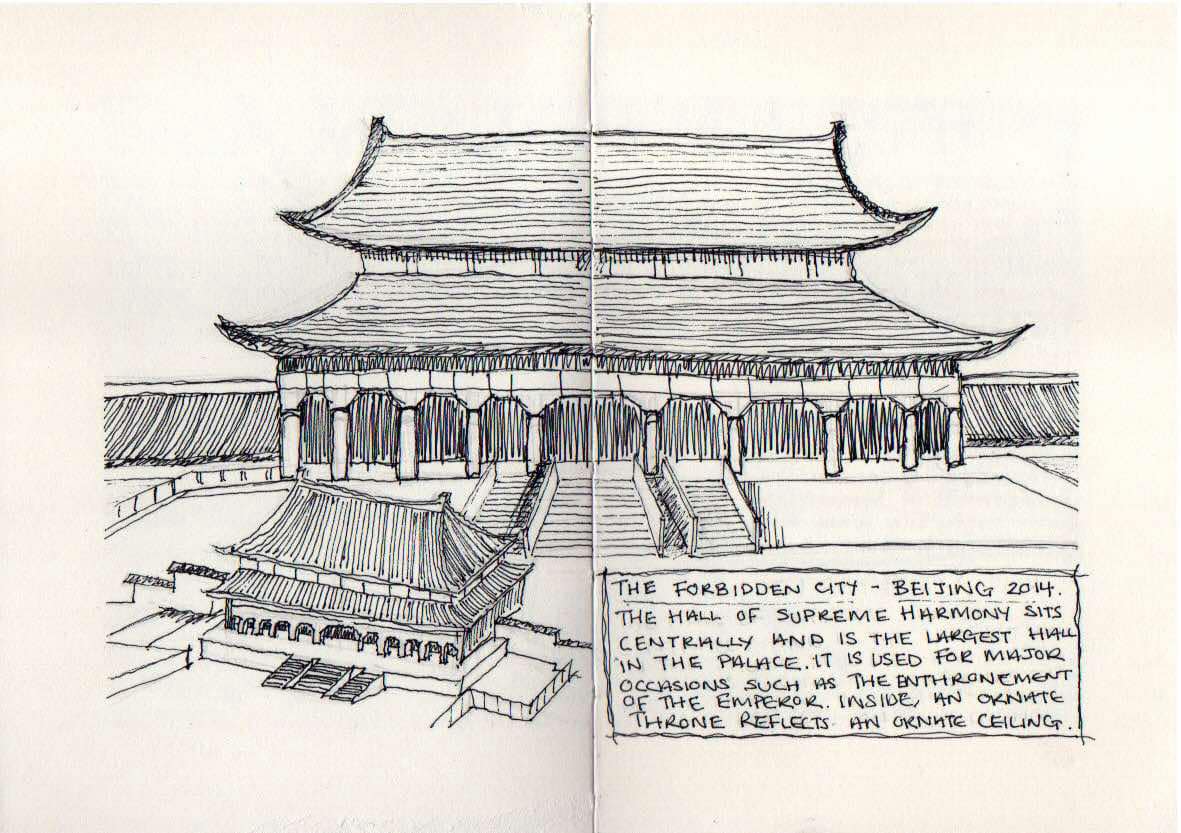 THE FORBIDDEN CITY - BEIJING 2014.
THE HALL OF SUPREME HARMONY SITS
CENTRALLY AND IS THE LARGEST HALL
IN THE PALACE. IT IS USED FOR MAJOR
OCCASIONS SUCH AS THE ENTHRONEMENT
OF THE EMPEROR. INSIDE, AN ORNATE
THRONE REFLECTS AN ORNATE CEILING.